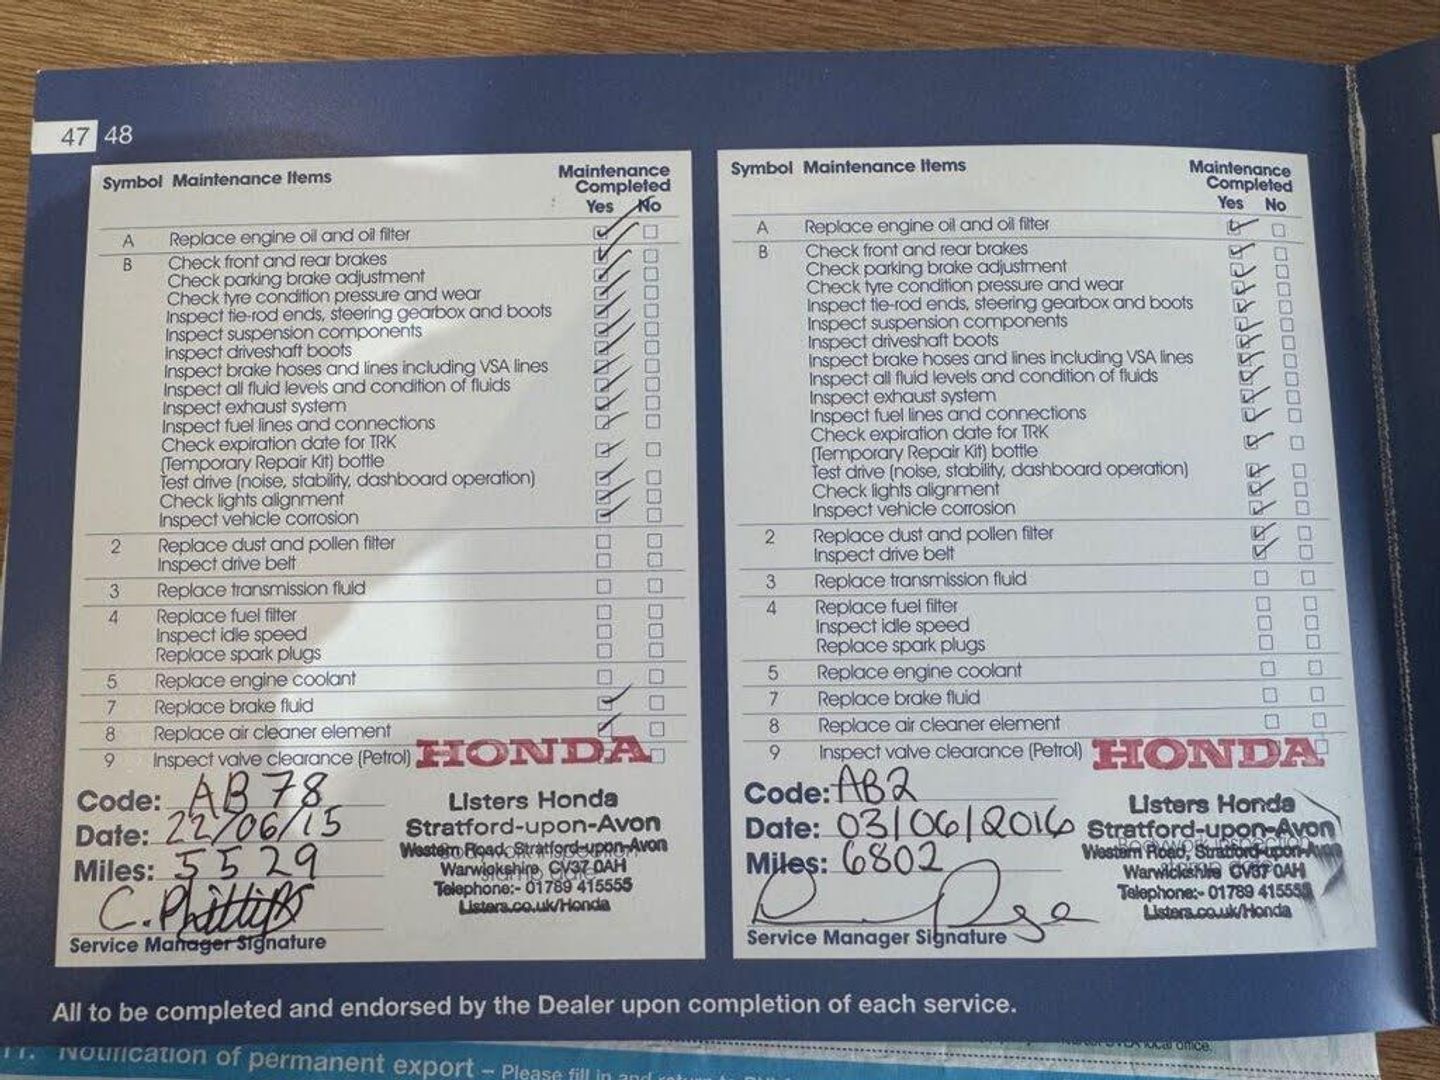 47 48
Symbol Maintenance Items Maintenance Completed
Yes No
A Replace engine oil and oil filter
B Check front and rear brakes
Check parking brake adjustment
Check tyre condition pressure and wear
Inspect tie-rod ends, steering gearbox and boots
Inspect suspension components
Inspect driveshaft boots
Inspect brake hoses and lines including VSA lines
Inspect all fluid levels and condition of fluids
Inspect exhaust system
Inspect fuel lines and connections
Check expiration date for TRK
(Temporary Repair Kit) bottle
Test drive (noise, stability, dashboard operation)
Check lights alignment
Inspect vehicle corrosion
2 Replace dust and pollen filter
Inspect drive belt
3 Replace transmission fluid
4 Replace fuel filter
Inspect idle speed
Replace spark plugs
5 Replace engine coolant
7 Replace brake fluid
8 Replace air cleaner element
9 Inspect valve clearance (Petrol) HONDA
Code: AB78
Date: 22/06/15
Miles: 5529
C. Phillips
Service Manager Signature
Listers Honda
Stratford-upon-Avon
Western Road, Stratford-upon-Avon
Warwickshire CV37 0AH
Telephone:- 01789 415555
Listers.co.uk/Honda
Symbol Maintenance Items Maintenance Completed
Yes No
A Replace engine oil and oil filter
B Check front and rear brakes
Check parking brake adjustment
Check tyre condition pressure and wear
Inspect tie-rod ends, steering gearbox and boots
Inspect suspension components
Inspect driveshaft boots
Inspect brake hoses and lines including VSA lines
Inspect all fluid levels and condition of fluids
Inspect exhaust system
Inspect fuel lines and connections
Check expiration date for TRK
(Temporary Repair Kit) bottle
Test drive (noise, stability, dashboard operation)
Check lights alignment
Inspect vehicle corrosion
2 Replace dust and pollen filter
Inspect drive belt
3 Replace transmission fluid
4 Replace fuel filter
Inspect idle speed
Replace spark plugs
5 Replace engine coolant
7 Replace brake fluid
8 Replace air cleaner element
9 Inspect valve clearance (Petrol) HONDA
Code: AB2
Date: 03/06/2016
Miles: 6802
Service Manager Signature
Listers Honda
Stratford-upon-Avon
Western Road, Stratford-upon-Avon
Warwickshire CV37 0AH
Telephone:- 01789 415555
Listers.co.uk/Honda
All to be completed and endorsed by the Dealer upon completion of each service.
11. Notification of permanent export – Please fill in and return to
local office.